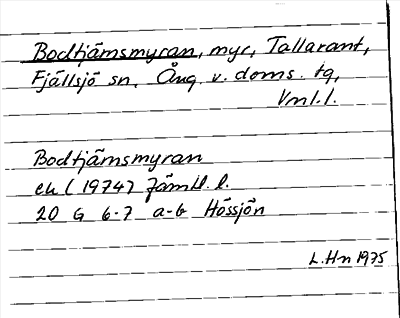 Bodtjämsmyran, myr, Tallarant,
Fjällsjö sn, Ång. v. doms. tg,
Vml.l.
Bodtjämsmyran
ek (1974) Jämtl. l.
20 G 6-7 a-b Hössjön
L.Hn 1975